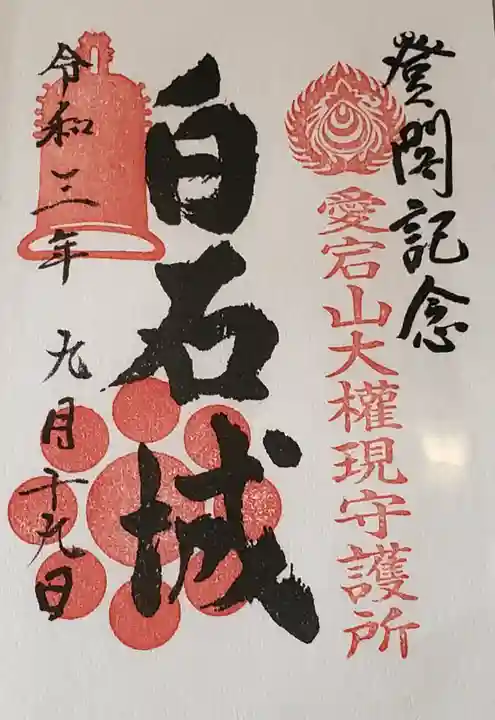 登閣記念
愛宕山大權現守護所
白石城
令和三年 九月十九日